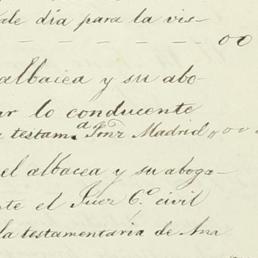 de día para la vis-
- - - - - - 00
albacea y su abo-
ar lo conducente
testam.a Gonz Madrid y 00
el albacea y su aboga-
te el Juez C.o civil
la testamentaria de Ana